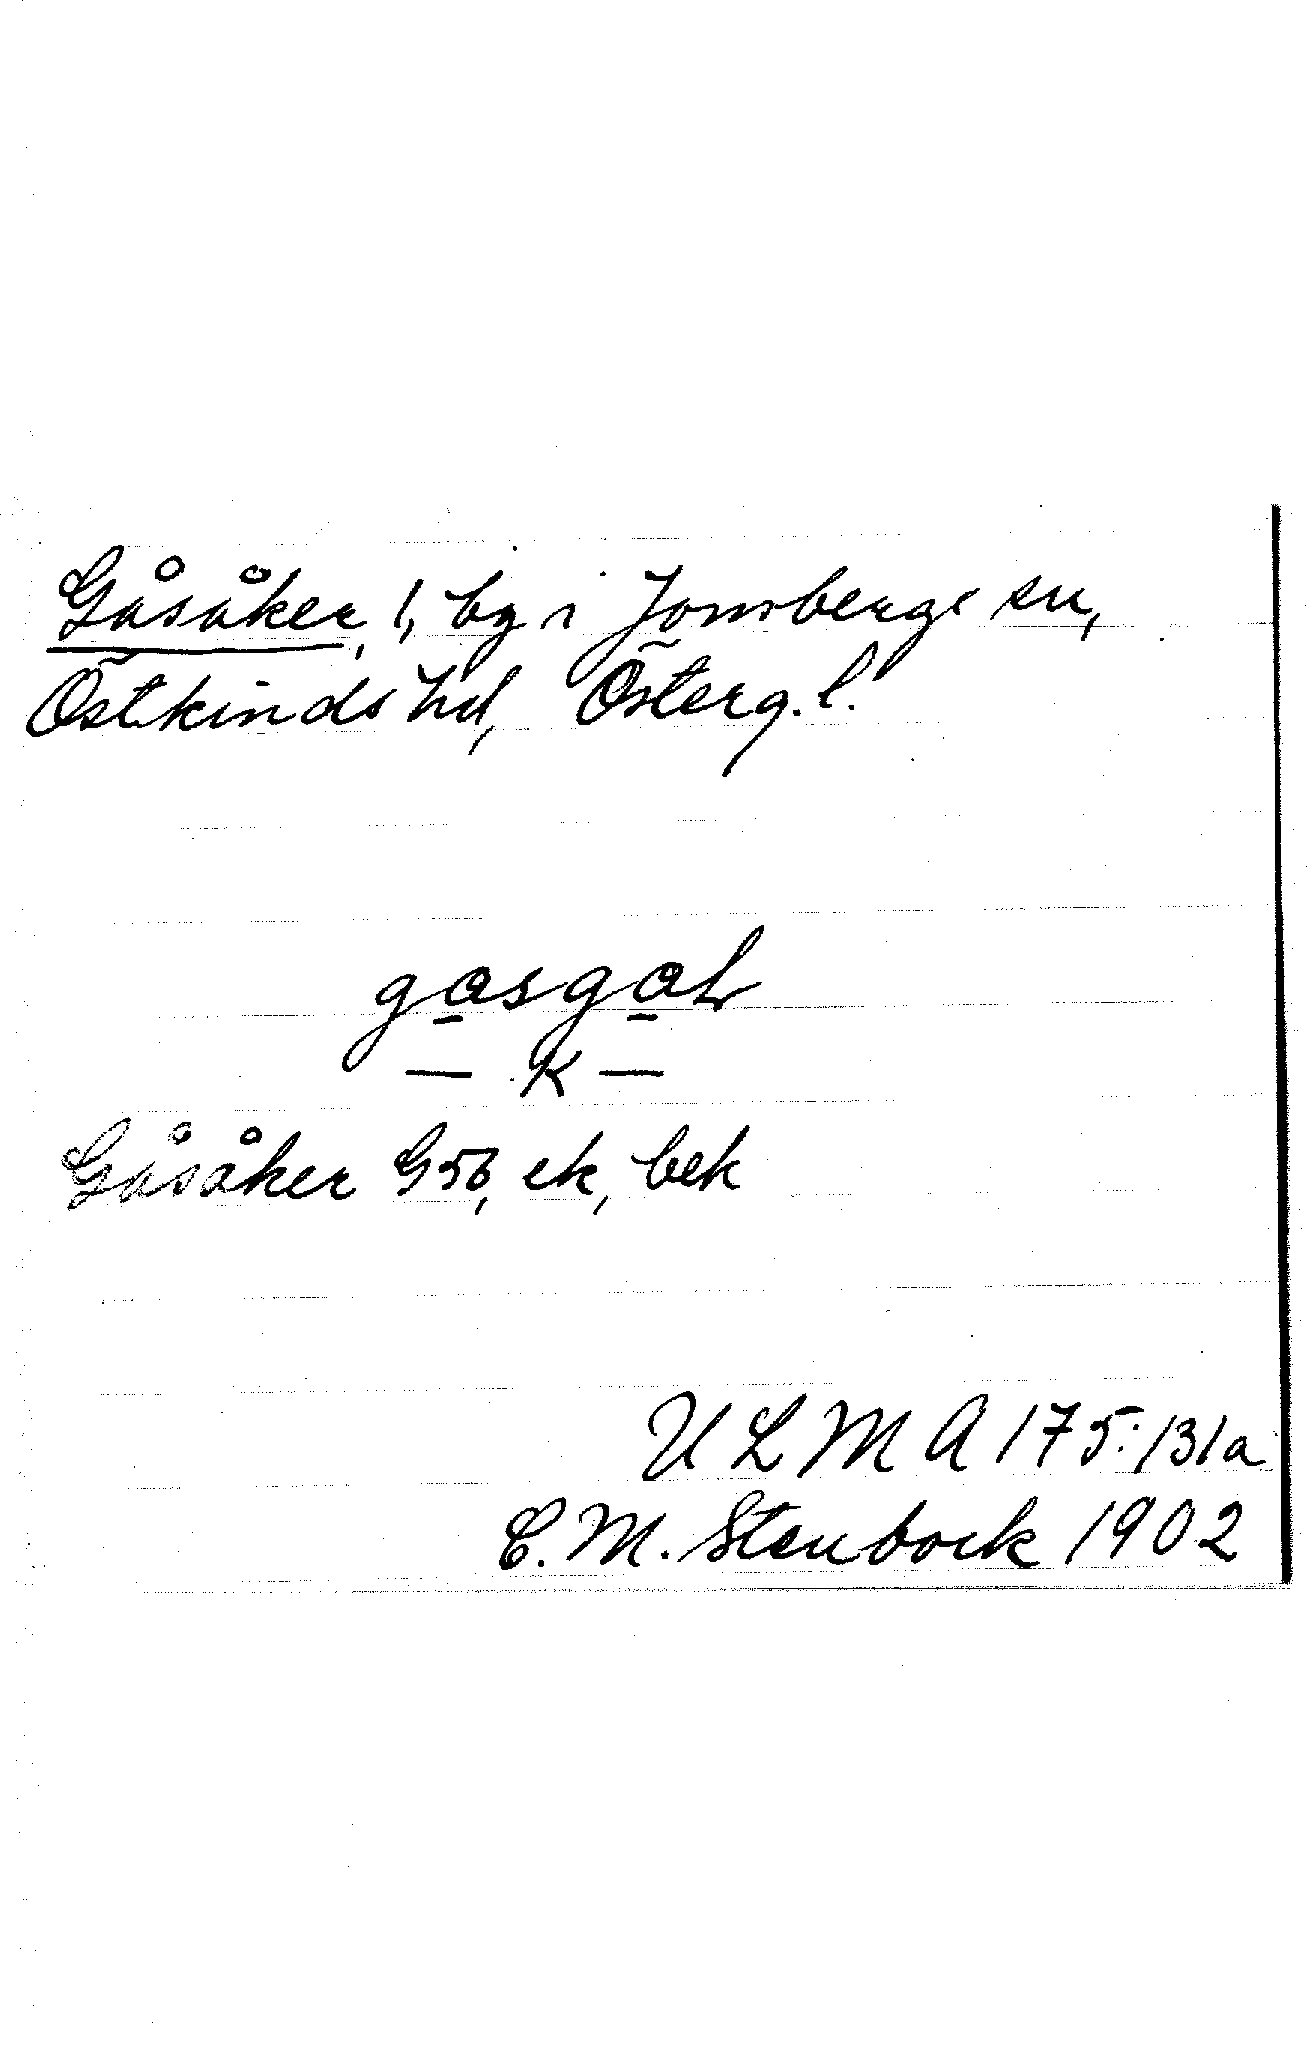 Gåsåker, l, by i Jonsbergs sn,
Östkinds hd, Österg. l.
gasgaL
— k —
Gåsåker G56, ek, bek
U L M A 175:131a
C. M. Stenbock 1902